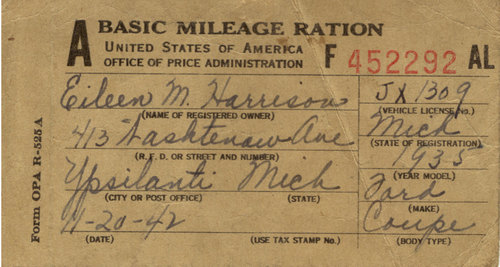 A BASIC MILEAGE RATION
UNITED STATES OF AMERICA
OFFICE OF PRICE ADMINISTRATION
F 452292 AL
Eileen M. Harrison
(NAME OF REGISTERED OWNER)
JX1309
(VEHICLE LICENSE No.)
413 Washtenaw Ave
(R. F. D. OR STREET AND NUMBER)
Mich
(STATE OF REGISTRATION)
Ypsilanti Mich
(CITY OR POST OFFICE) (STATE)
1935
(YEAR MODEL)
Ford
(MAKE)
11-20-42
(DATE) (USE TAX STAMP No.)
Coupe
(BODY TYPE)
Form OPA R-525 A